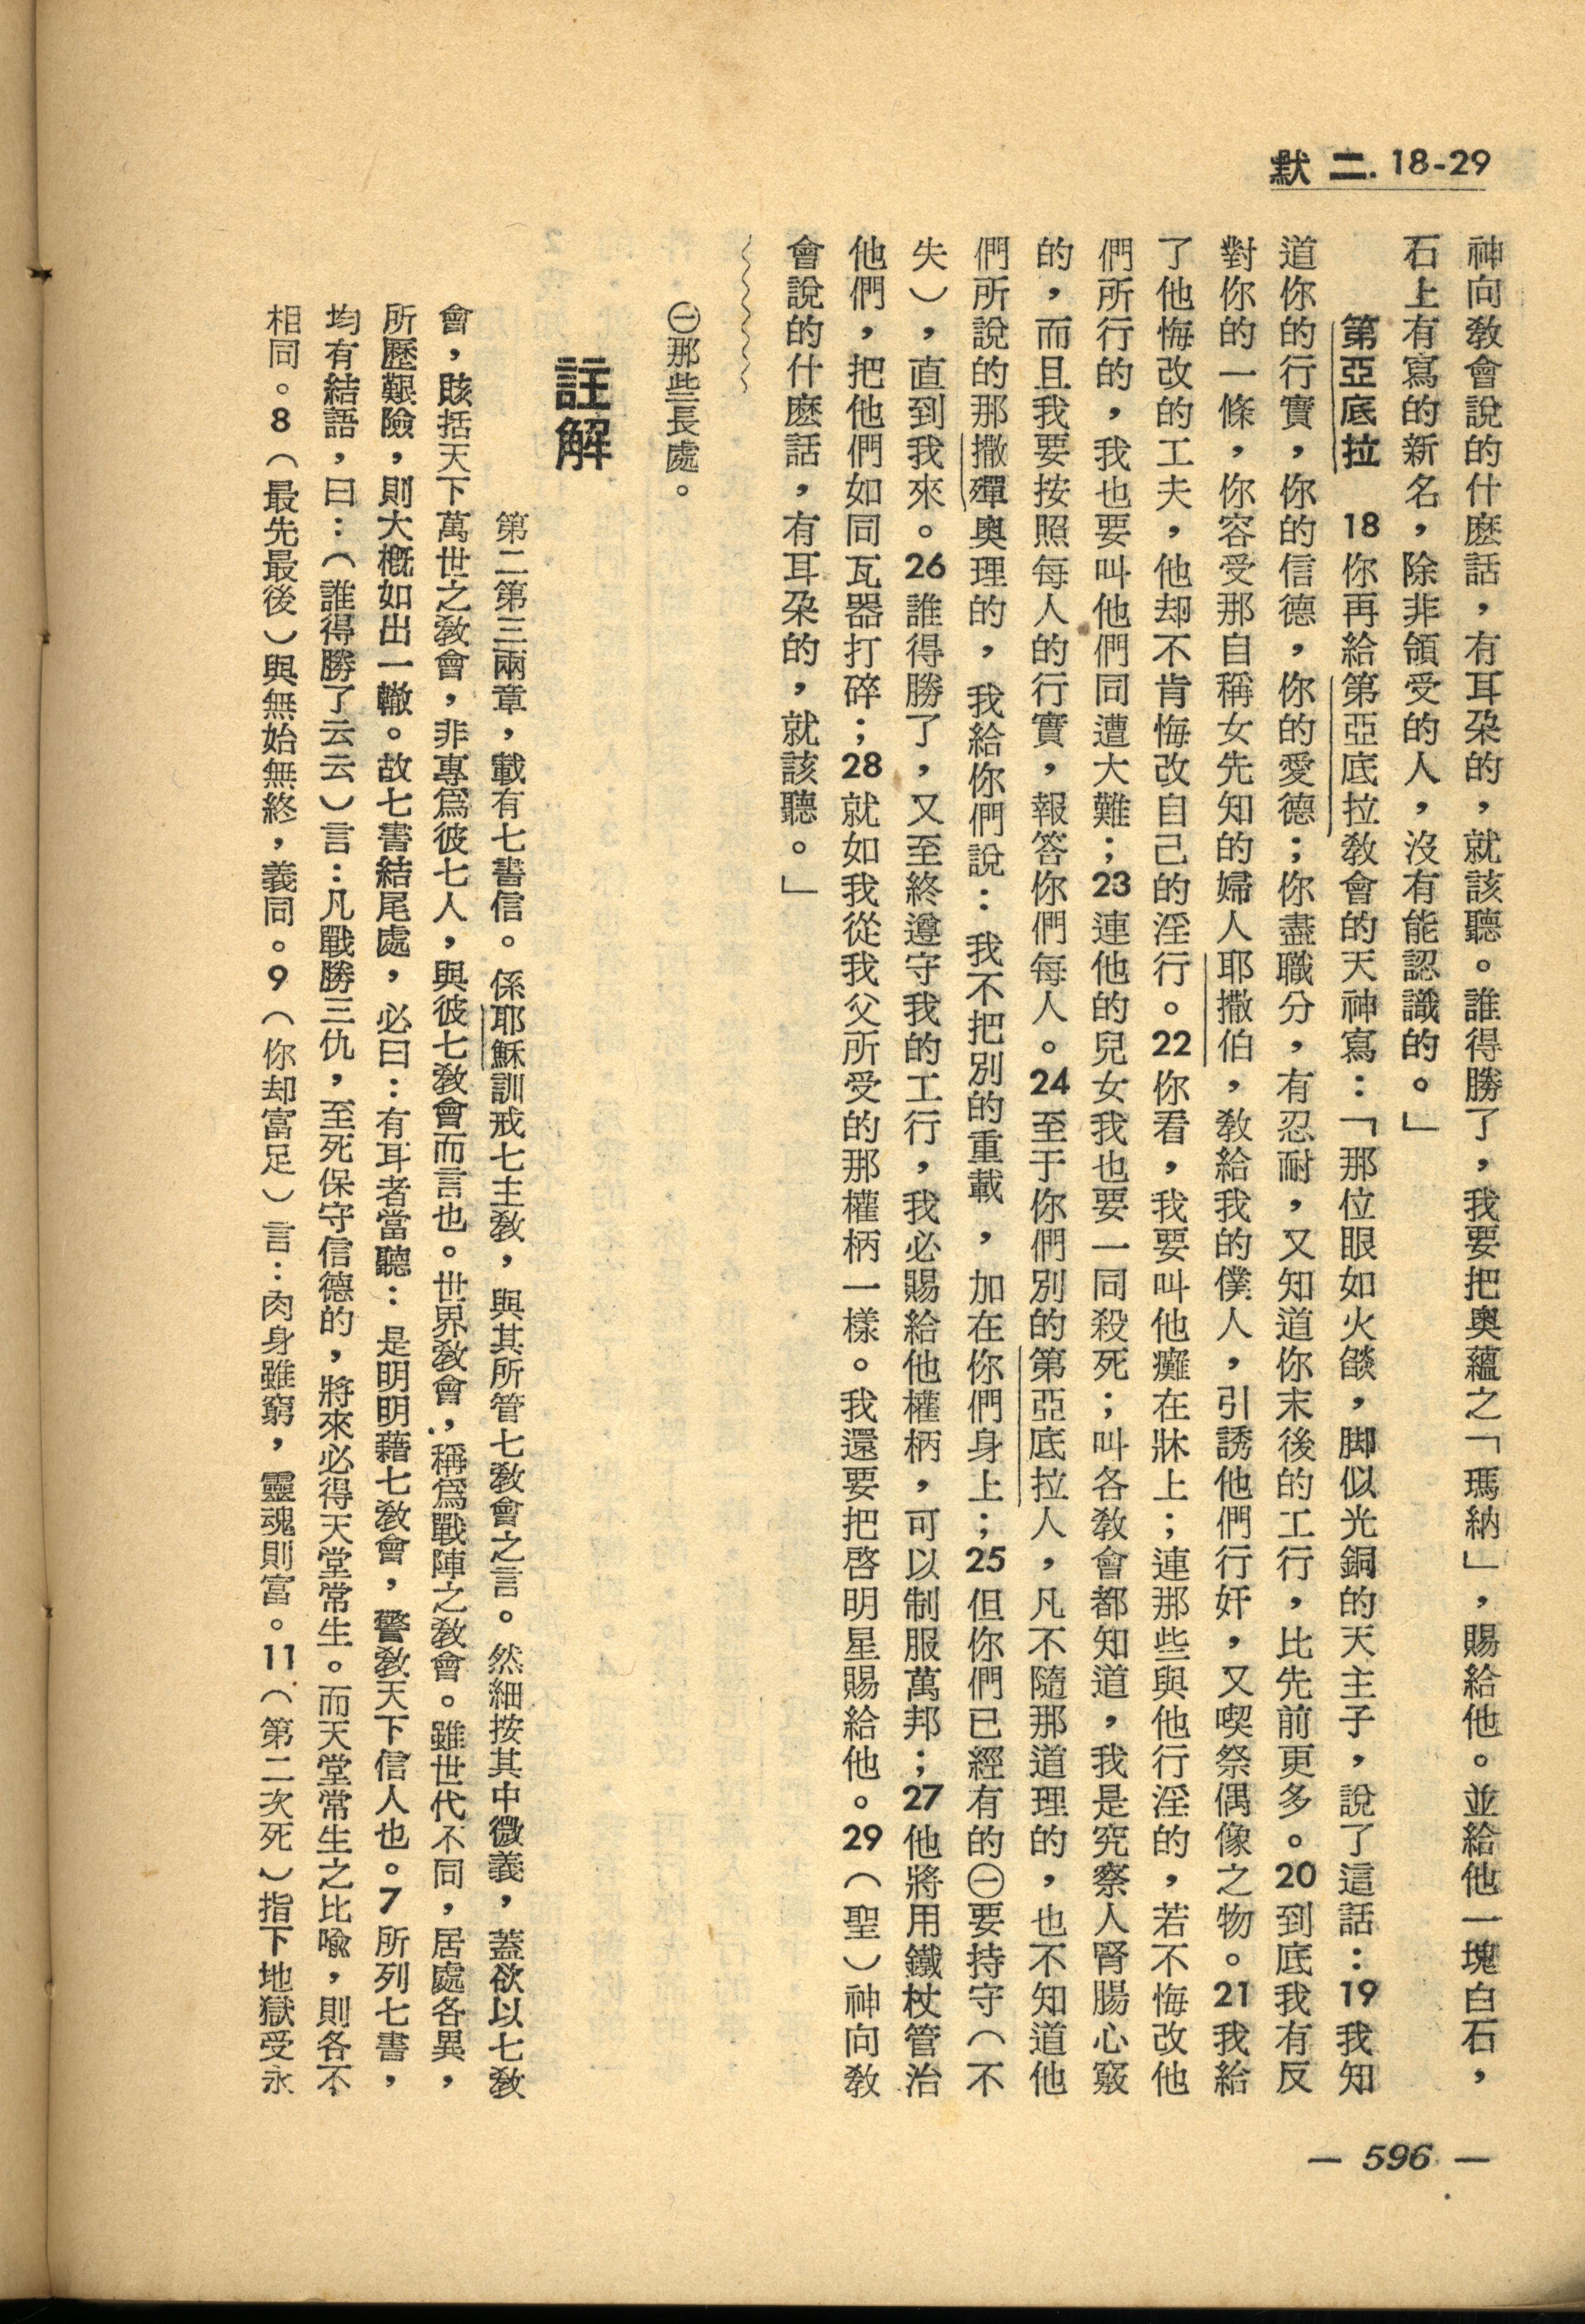 默二. 18-29
神向敎會說的什麽話，有耳朶的，就該聽。誰得勝了，我要把奧蘊之「瑪納」，賜給他。並給他一塊白石，
石上有寫的新名，除非領受的人，沒有能認識的。」
第亞底拉　18你再給第亞底拉敎會的天神寫：「那位眼如火燄，脚似光銅的天主子，說了這話：19我知
道你的行實，你的信德，你的愛德；你盡職分，有忍耐，又知道你末後的工行，比先前更多。20到底我有反
對你的一條，你容受那自稱女先知的婦人耶撒伯，敎給我的僕人，引誘他們行奸，又喫祭偶像之物。21我給
了他悔改的工夫，他却不肯悔改自己的淫行。22你看，我要叫他癱在牀上；連那些與他行淫的，若不悔改他
們所行的，我也要叫他們同遭大難；23連他的兒女我也要一同殺死；叫各敎會都知道，我是究察人腎腸心竅
的，而且我要按照每人的行實，報答你們每人。24至于你們別的第亞底拉人，凡不隨那道理的，也不知道他
們所說的那撒殫奧理的，我給你們說：我不把別的重載，加在你們身上；25但你們已經有的㊀要持守（不
失），直到我來。26誰得勝了，又至終遵守我的工行，我必賜給他權柄，可以制服萬邦；27他將用鐵杖管治
他們，把他們如同瓦器打碎；28就如我從我父所受的那權柄一樣。我還要把啓明星賜給他。29（聖）神向敎
會說的什麽話，有耳朶的，就該聽。」
㊀那些長處。
註解
第二第三兩章，載有七書信。係耶穌訓戒七主敎，與其所管七敎會之言。然細按其中微義，蓋欲以七敎
會，賅括天下萬世之敎會，非專爲彼七人，與彼七敎會而言也。世界敎會，稱爲戰陣之敎會。雖世代不同，居處各異，
所歷艱險，則大槪如出一轍。故七書結尾處，必曰：有耳者當聽：是明明藉七敎會，警敎天下信人也。7所列七書，
均有結語，曰：（誰得勝了云云）言：凡戰勝三仇，至死保守信德的，將來必得天堂常生。而天堂常生之比喩，則各不
相同。8（最先最後）與無始無終，義同。9（你却富足）言：肉身雖窮，靈魂則富。11（第二次死）指下地獄受永
— 596 —